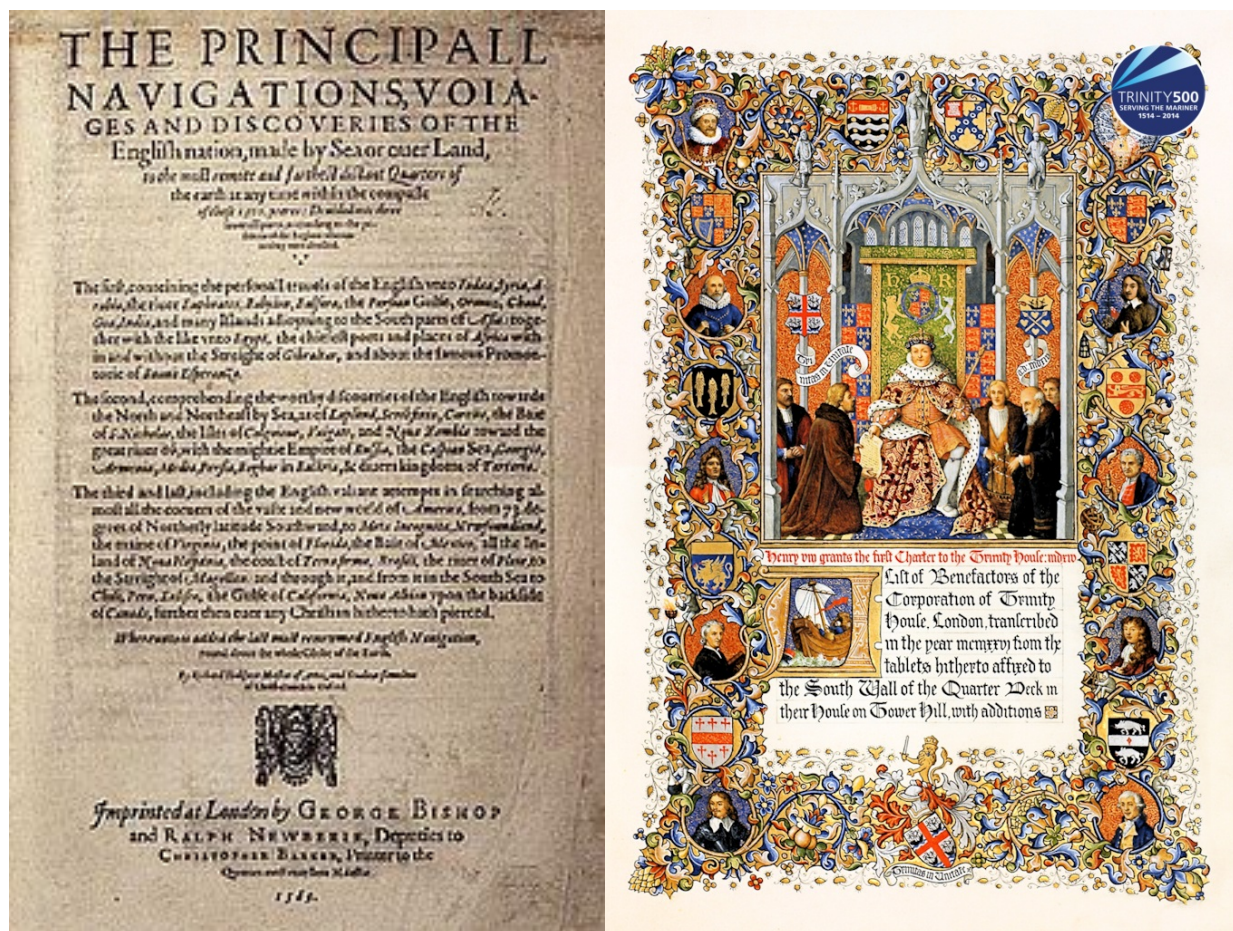 THE PRINCIPALL
NAVIGATIONS, VOIA-
GES AND DISCOVERIES OF THE
Engliſh nation, made by Sea or ouer Land,
to the moſt remote and fartheſt diſtant Quarters of
the earth at any time within the compaſſe
of theſe 1500. yeeres: Deuided into three
ſeuerall parts, according to the po-
The firſt, conteining the perſonall trauels of the Engliſh vnto Iudæa, Syria, A-
rabia, the riuer Euphrates, Babylon, Balſara, the Perſian Gulfe, Ormuz, Chaul,
Goa, India, and many Iſlands adioyning to the South parts of Aſia: toge-
ther with the like vnto Egypt, the chiefeſt ports and places of Africa with-
in and without the Streight of Gibraltar, and about the famous Promon-
torie of Buona Eſperanza.
The ſecond, comprehending the worthy diſcoueries of the Engliſh towards
the North and Northeaſt by Sea, as of Lapland, Scrikfinia, Corelia, the Baie
of S. Nicholas, the Iſles of Colgoieue, Vaigats, and Noua Zembla toward the
great riuer Ob, with the mightie Empire of Ruſſia, the Caſpian Sea, Georgia,
Armenia, Media, Perſia, Boghar in Bactria, & diuers kingdoms of Tartaria.
The third and laſt, including the Engliſh valiant attempts in ſearching al-
moſt all the corners of the vaſte and new world of America, from 73. de-
grees of Northerly latitude Southward, to Meta Incognita, Newfoundland,
the maine of Virginia, the point of Florida, the Baie of Mexico, all the In-
land of Noua Hiſpania, the coaſt of Terra firma, Braſill, the riuer of Plate, to
the Streight of Magellan: and through it, and from it in the South Sea to
Chili, Peru, Xaliſco, the Gulfe of California, Noua Albion vpon the backſide
of Canada, further then euer any Chriſtian hitherto hath pierced.
Whereunto is added the laſt moſt renowmed Engliſh Nauigation,
round about the whole Globe of the Earth.
By Richard Hakluyt Maſter of Artes, and Student ſometime
Imprinted at London by GEORGE BISHOP
and RALPH NEWBERIE, Deputies to
CHRISTOPHER BARKER, Printer to the
Queenes moſt excellent Maieſtie.
1589.
TRINITY500
SERVING THE MARINER
1514 – 2014
H R
Tri
nitas in Unitate
Henry viii grants the first Charter to the Trinity House: mdxiv
List of Benefactors of the
Corporation of Trinity
House, London, transcribed
in the year mcmxxvj from the
tablets hitherto affixed to
the South Wall of the Quarter Deck in
their House on Tower Hill, with additions
Trinitas in Unitate